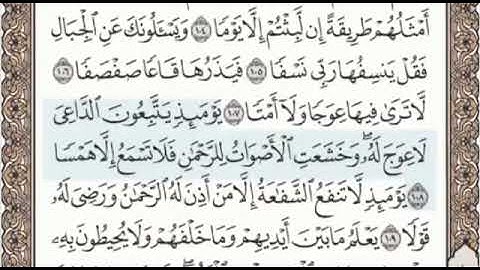 أَمْثَلُهُمْ طَرِيقَةً إِن لَّبِثْتُمْ إِلَّا يَوْمًا ١٠٤ وَيَسْـَٔلُونَكَ عَنِ ٱلْجِبَالِ
فَقُلْ يَنسِفُهَا رَبِّى نَسْفًا ١٠٥ فَيَذَرُهَا قَاعًا صَفْصَفًا ١٠٦
لَّا تَرَىٰ فِيهَا عِوَجًا وَلَآ أَمْتًا ١٠٧ يَوْمَئِذٍ يَتَّبِعُونَ ٱلدَّاعِىَ
لَا عِوَجَ لَهُۥ ۖ وَخَشَعَتِ ٱلْأَصْوَاتُ لِلرَّحْمَٰنِ فَلَا تَسْمَعُ إِلَّا هَمْسًا
١٠٨ يَوْمَئِذٍ لَّا تَنفَعُ ٱلشَّفَٰعَةُ إِلَّا مَنْ أَذِنَ لَهُ ٱلرَّحْمَٰنُ وَرَضِىَ لَهُۥ
قَوْلًا ١٠٩ يَعْلَمُ مَا بَيْنَ أَيْدِيهِمْ وَمَا خَلْفَهُمْ وَلَا يُحِيطُونَ بِهِۦ